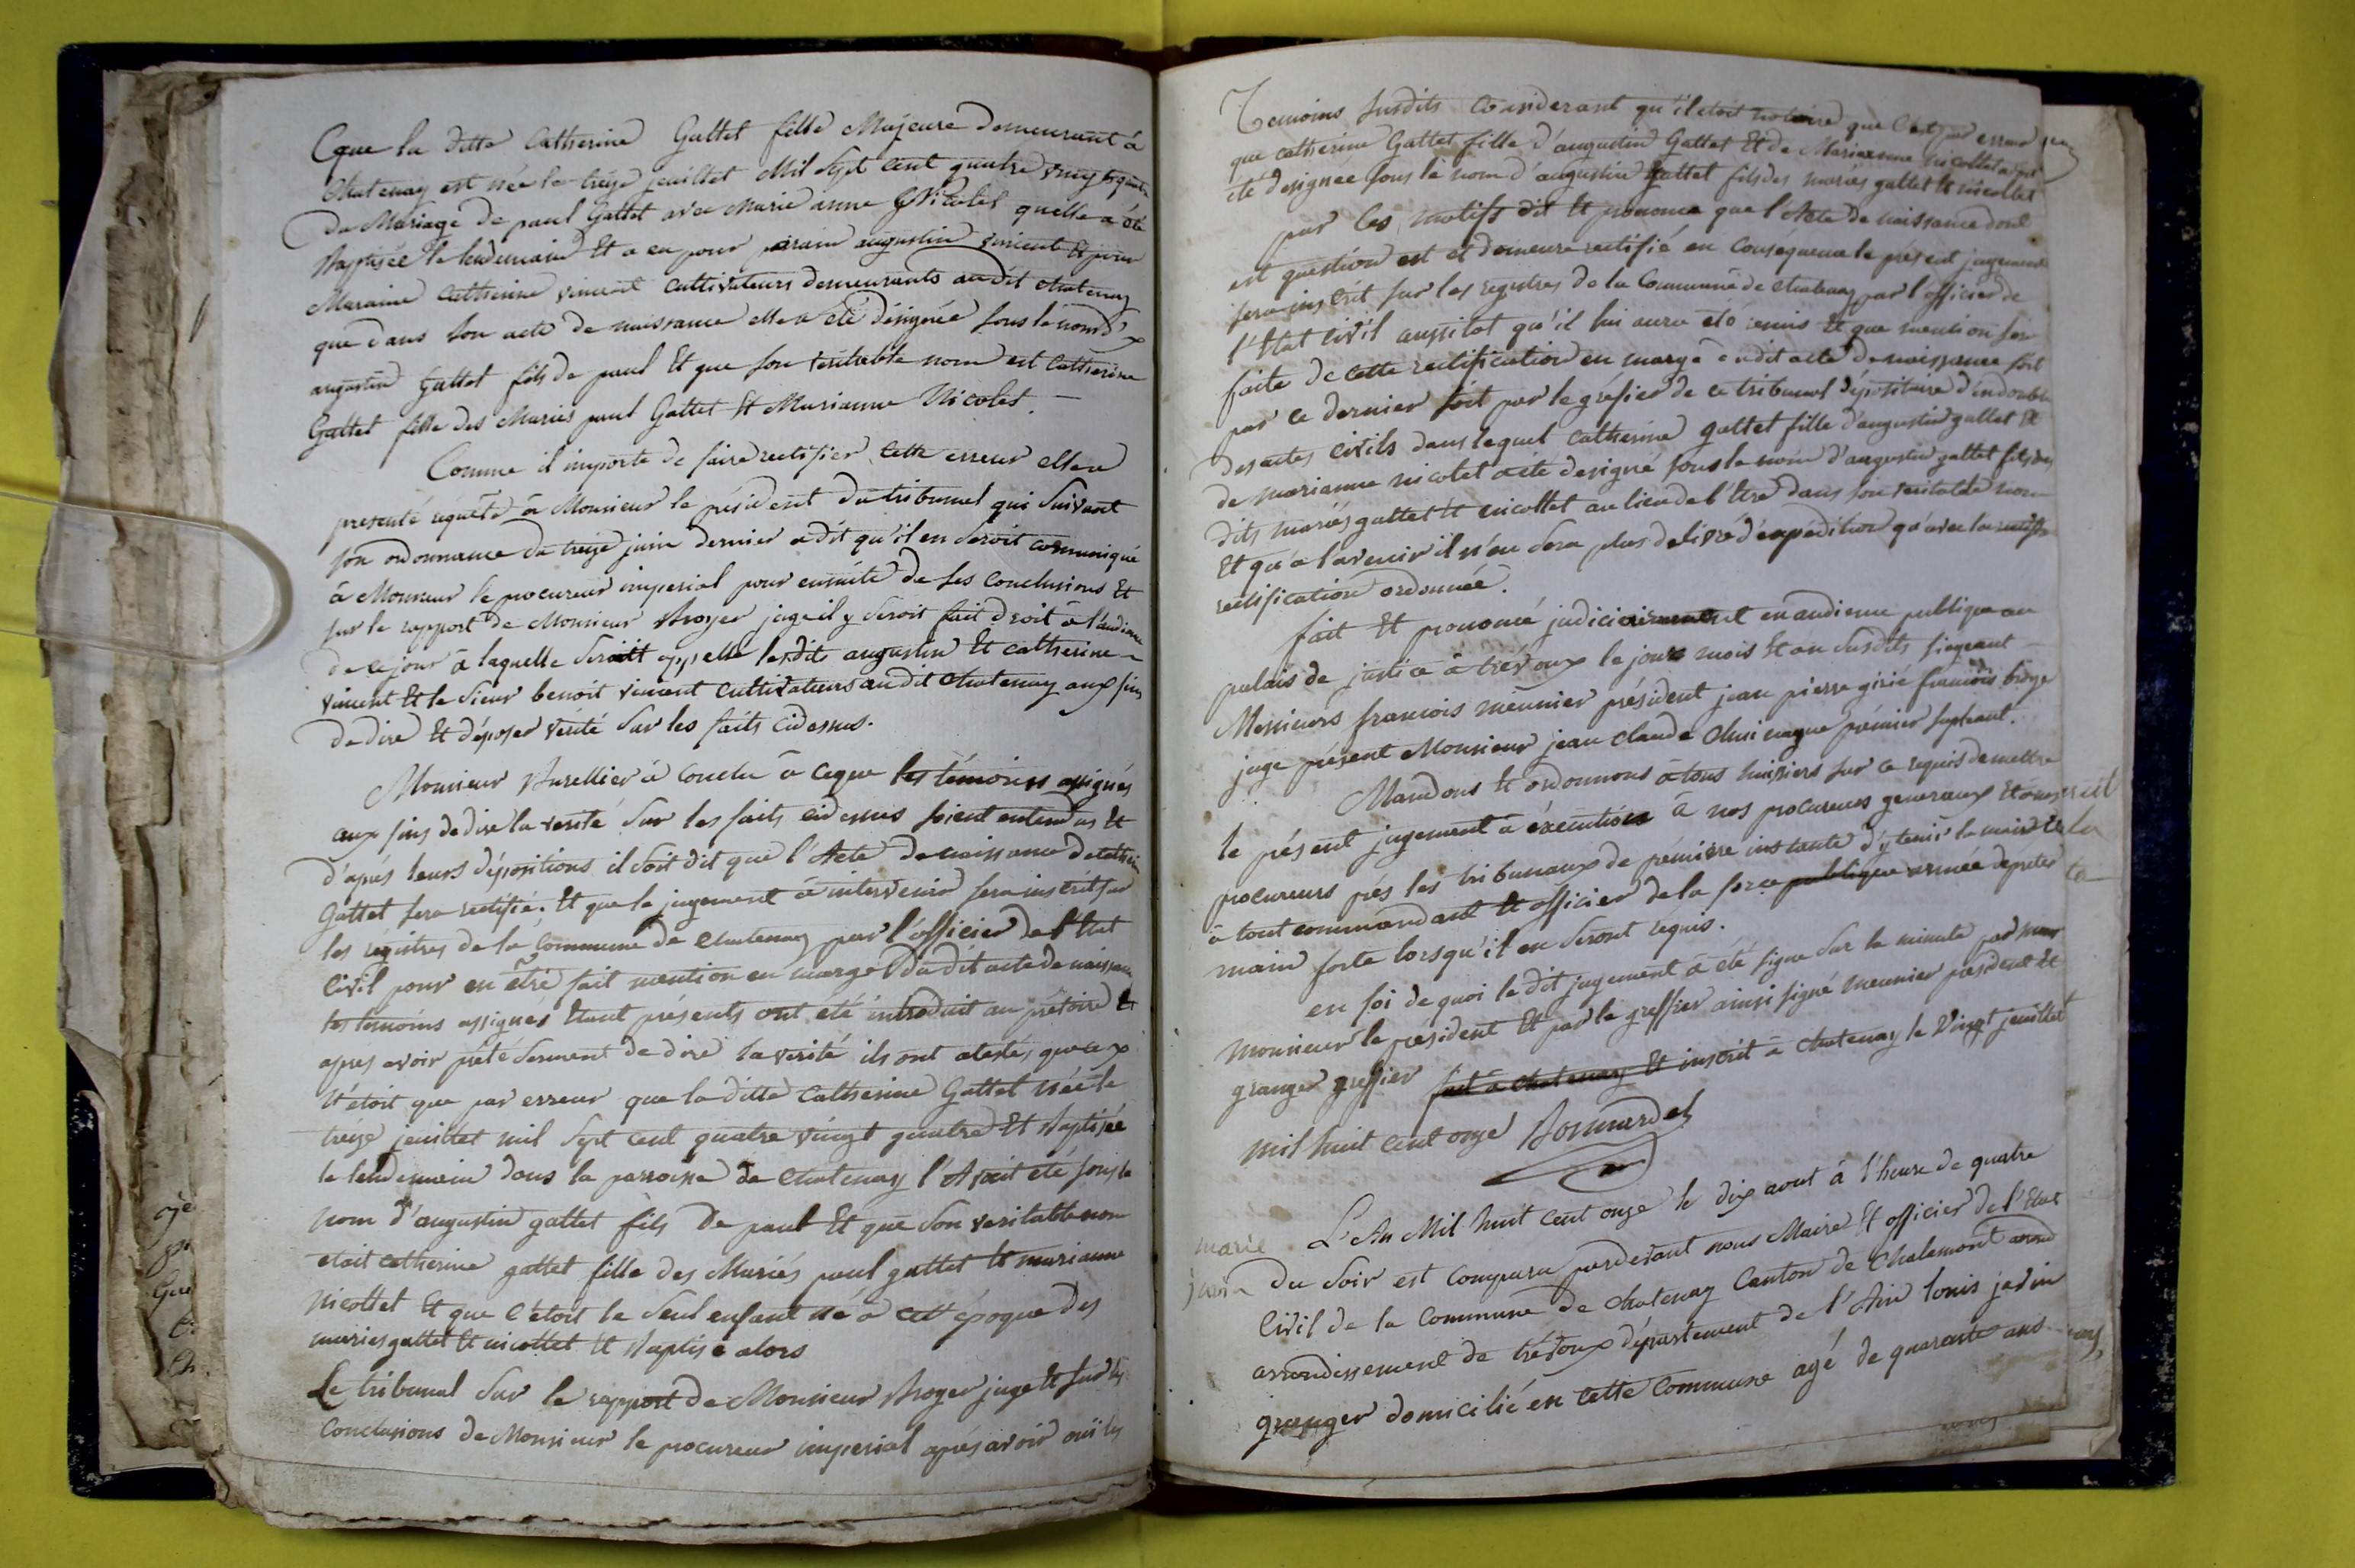 que la ditte Catherine Gattet fille Majeure demeurant à
Chatenay est née le treize jeuillet Mil Sept cent quatre vingt quatre
du Mariage de paul Gattet avec Marie anne Nicolet quelle a été
baptisée le lendemain Et a eu pour parain augustin vincent Et pour
Maraine Catherine vincent cultivateurs demeurants audit chatenay
que dans son acte de naissance elle a été désignée sous le nom d'
augustin Gattet fils de paul Et que son veritable nom est Catherine
Gattet fille des Mariés paul Gattet Et Marianne Nicolet.
Comme il importe de faire rectifier cette erreur elle a
presenté requête à Monsieur le président du tribunal qui Suivant
son ordonnance du treize juin dernier a dit qu'il en Seroit communiqué
à Monsieur le procureur imperial pour ensuite de ses Conclusions Et
sur le rapport de Monsieur Broyer juge il y Seroit fait droit à l'audience
de ce jour à laquelle Seroitt appellé lesdits augustin Et catherine
vincent Et le Sieur benoit vincent cultivateurs audit chatenay aux fins
de dire Et déposer vérité Sur les faits cidessus.
Monsieur Burellier à Conclu à ceque les témoins assignés
aux fins de dire la verité Sur les faits cidessus soient entendus Et
d'après leurs dépositions il Soit dit que l'Acte de naissance de catherine
Gattet sera rectifié. Et que le jugement à intervenir sera inscrit sur
les régistres de la Commune de Chatenay par l'officier de l'Etat
Civil pour en être fait mention en marge du dit acte de naissance
les temoins assignés Etant présents ont été introduit au prétoire Et
apres avoir prêté Serment de dire la verité ils ont atestés que ce
n'étoit que par erreur que la ditte Catherine Gattet née le
treize jeuillet mil Sept cent quatre vingt quatre Et Baptisée
le lendemain dans la parroisse de Chatenay l'Avait été sous le
nom d'augustin gattet fils De paul Et que Son veritable nom
etait catherine gattet fille des Mariés paul gattet Et marianne
Nicollet Et que C'étoit le Seul enfant né à cett époque des
maries gattet Et nicollet Et Baptisé alors
Le tribunal Sur le rapport de Monsieur Broyer juge Et sur les
Conclusions de Monsieur le procureur imperial après avoir ouï les
Temoins Susdits Considerant qu'il étoit notoire que C'est par erreur
que catherine Gattet fille d'augustin Gattet Et de Marieanne nicollet a
été designée sous le nom d'augustin gattet fils des mariés gattet Et nicollet
par Ces motifs dit Et prononce que l'Acte de naissance dont
est question est et demeure rectifié en Conséquence le présent jugement
sera inscrit sur les registres de la Commune de Chatenay par l'officier de
l'Etat Civil aussitot qu'il lui aura été remis Et que mention sera
faite de cette rectification en marge dudit acte de naissance soit
par ce dernier soit par le gréfier de ce tribunal dépositaire d'un double
des actes civils dans lequel catherine gattet fille d'augustin gattet Et
de marianne nicolet a été designé sous le nom d'augustin gattet fils des
dits mariés gattet Et nicollet au lieu de l'Etre dans son veritable nom
Et qu'à l'avenir il n'en Sera plus delivré d'expédition qu'avec la
rectification ordonnée.
fait Et prononcé judiciairement en audience publique au
palais de justice à trévoux le jour mois Et an Susdits Siegeant
Messieurs francois meunier président jean pierre girié francois
juge présent Monsieur jean claude premier Supleant.
Mandons Et ordonnons à tous huissiers sur ce requis de mettre
le présent jugement à éxécution à nos procureurs generaux Et à nos
procureurs près les tribunaux de première instante d'y tenir la main Et
à tout commandant Et officier de la force publique armée de preter
main forte lorsqu'il en Seront requis.
en foi de quoi le dit jugement a été signé Sur la minute par
Monsieur le président Et par le greffier ainsi signé meunier président Et
granger greffier fait à Chatenay Et inscrit à chatenay le Vingt jeuillet
mil huit cent onze Bonnardel
marie
javin
L'An Mil huit cent onze le dix aout à l'heure de quatre
Du Soir est comparu pardevant nous Maire Et officier de l'Etat
Civil de la Commune de chatenay Canton de Chalamont
arrondissement de trévoux département de l'Ain louis javin
granger domicilié en cette Commune agé de quarante ans